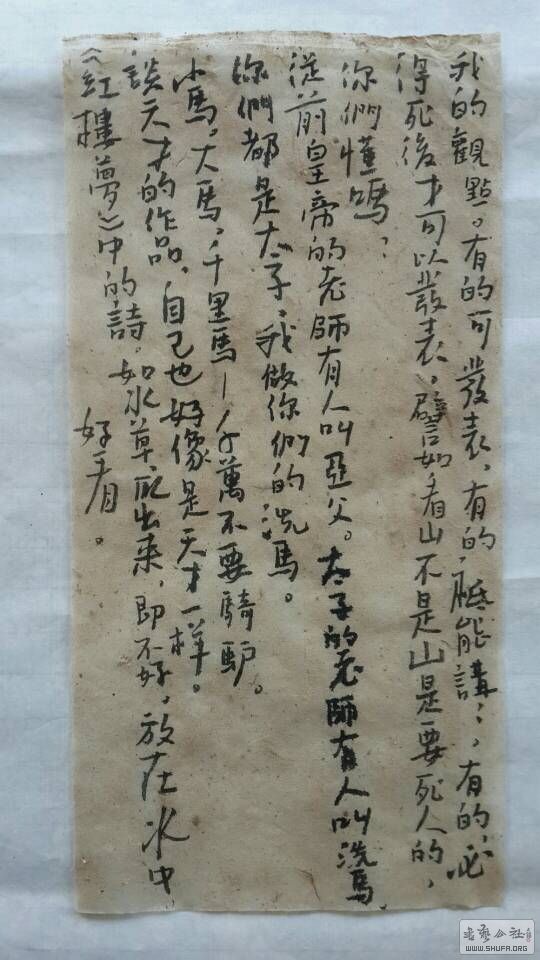 我的觀點。有的可發表，有的，祗能講，，有的，必
得死後才可以發表，譬如看山不是山是要死人的，
你們懂嗎？
從前皇帝的老師有人叫亞父。太子的老師有人叫洗馬
你們都是太子，我做你們的洗馬。
小馬，大馬，千里馬—千萬不要騎驢。
談天才的作品，自己也好像是天才一樣。
《紅樓夢》中的詩，如水草，取出來，即不好，放在水中
好看。
書藝公社
WWW.SHUFA.ORG